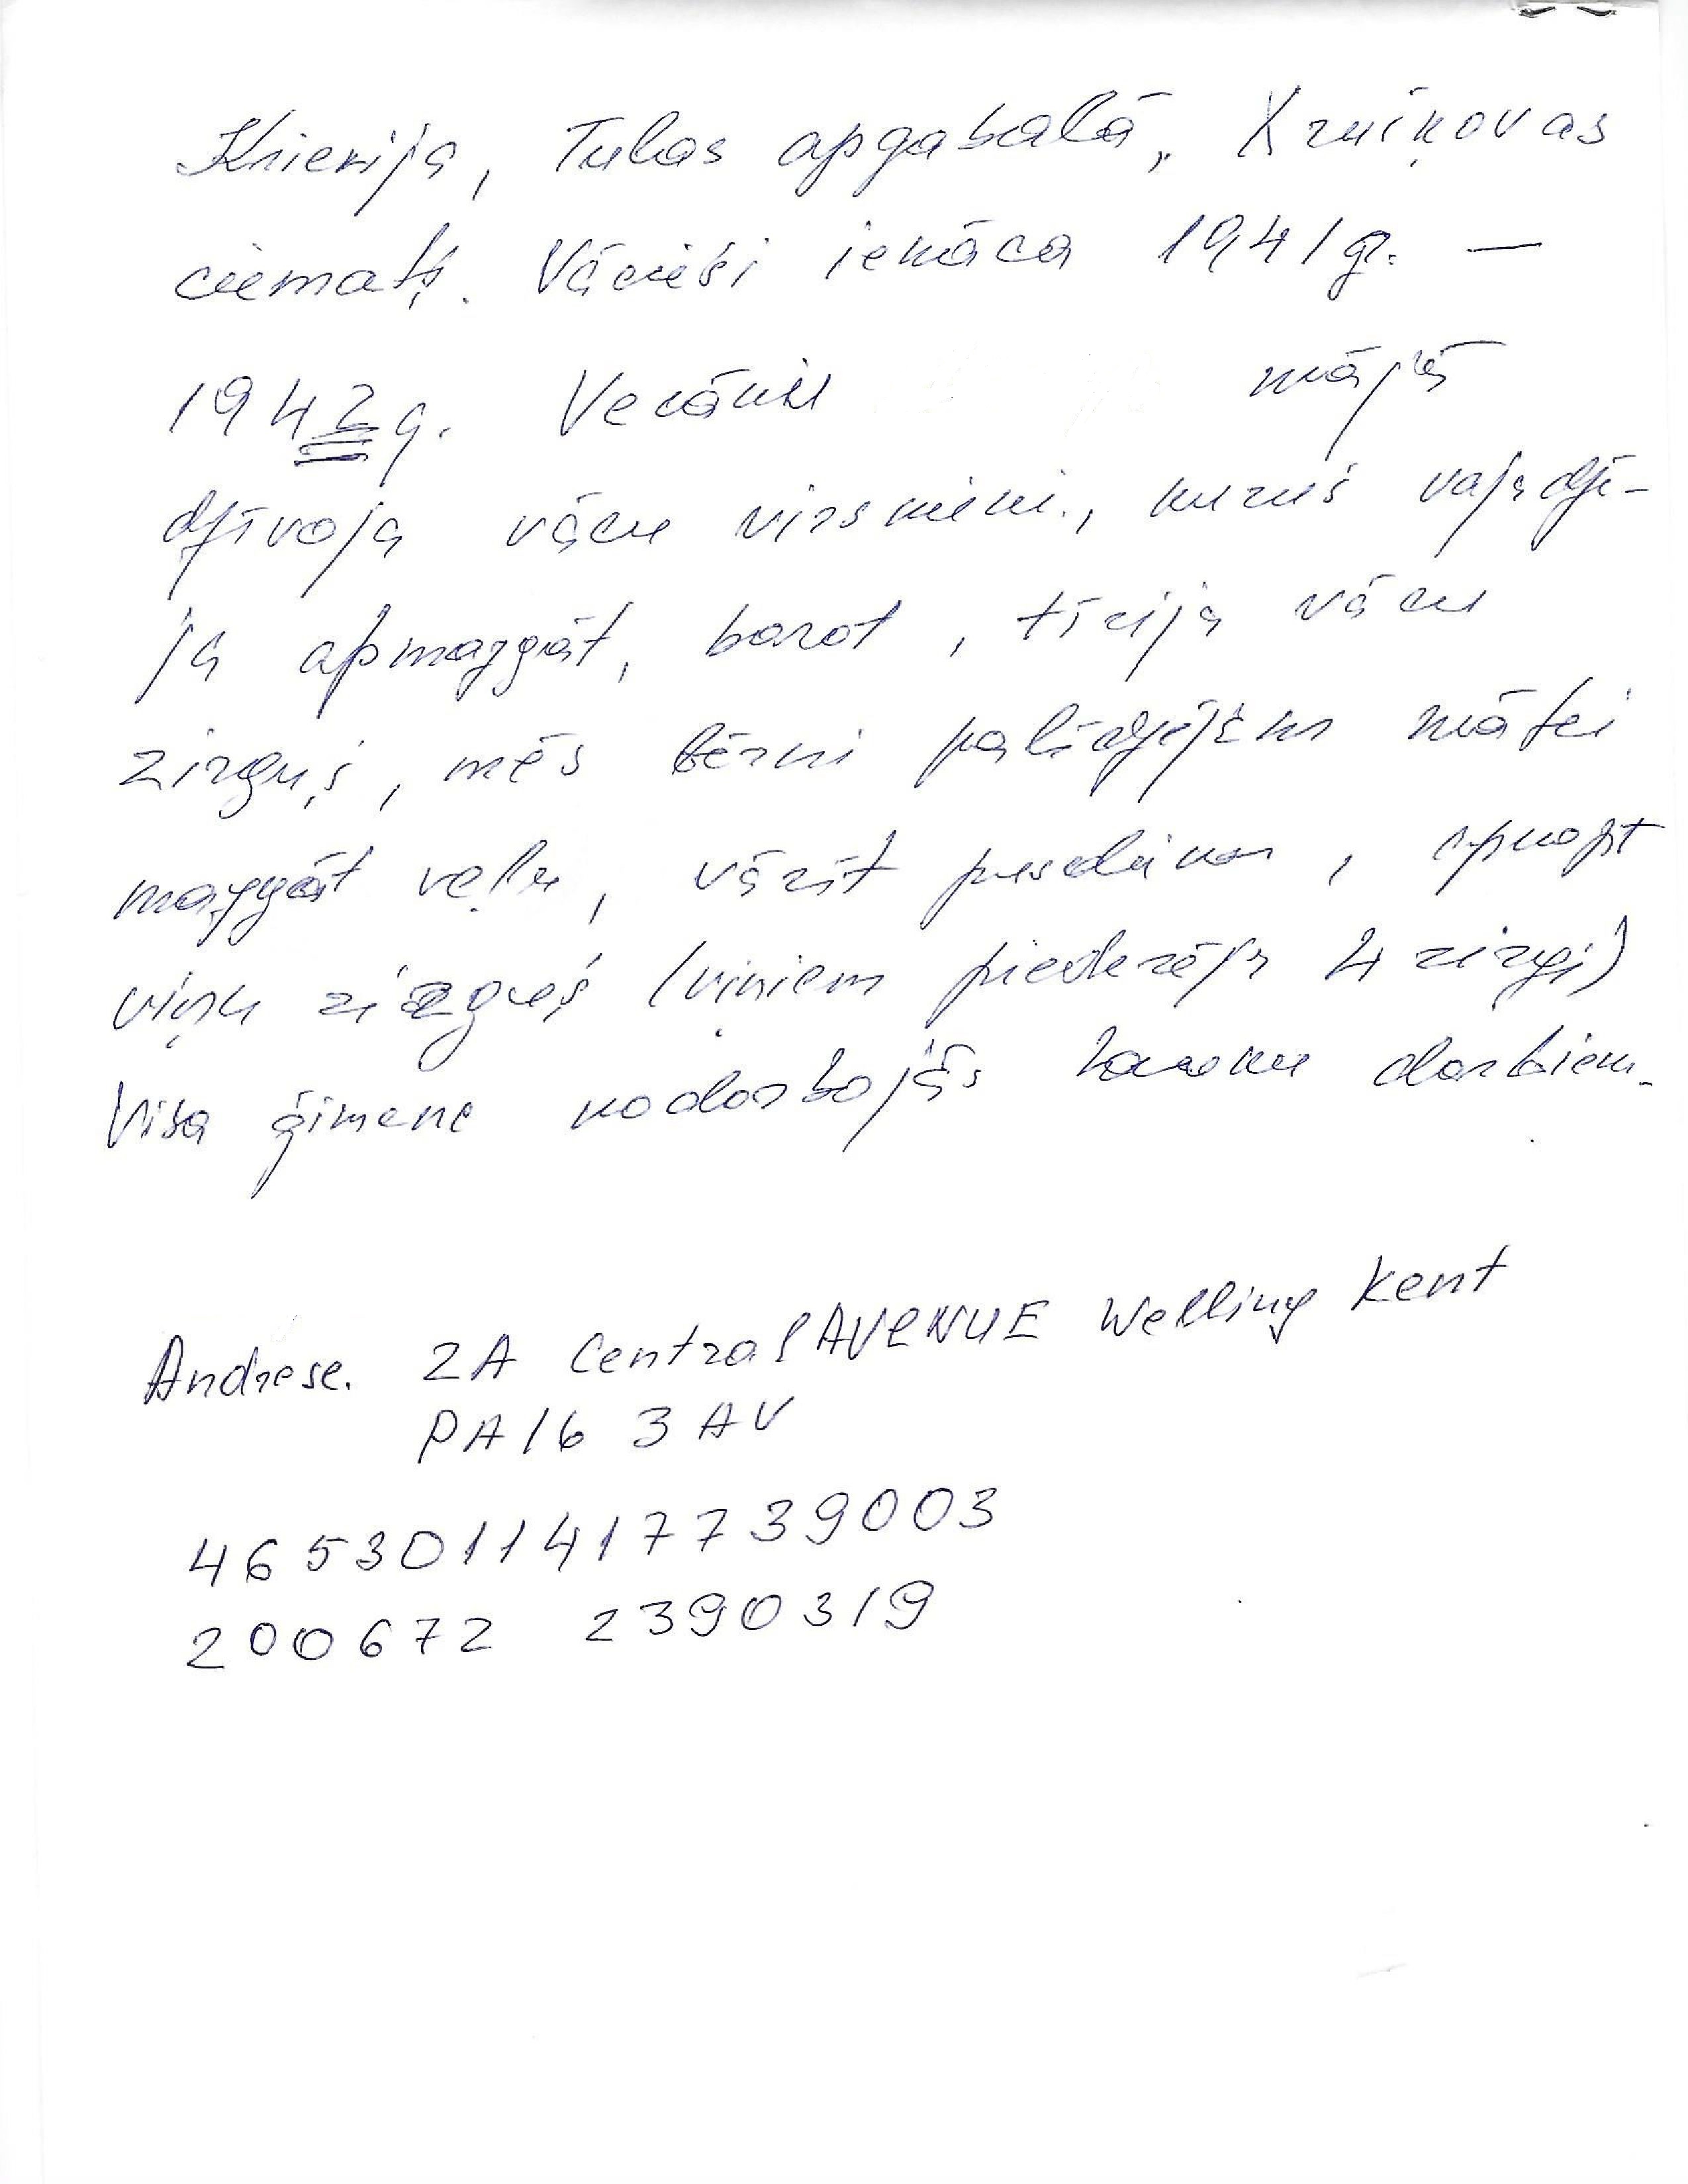 Krievija, Tulas apgabalā, Xruiņovas
ciemats. Vācieši ienāca 1941g. —
1942g. Vecāku mājās
dzīvoja vācu virsnieki, kurus vajadzē-
ja apmazgāt, barot, tīrija vācu
zirgus, mēs bērni palīdzējām mātei
mazgāt veļu, vārīt pusdienas, apkopt
viņu zirgus (viņiem piederēja 4 zirgi)
Visa ģimene nodarbojās lauku darbiem.
Andrese. 2A Central AVENUE Welling Kent
PA16 3AV
4653011417739003
200672 2390319